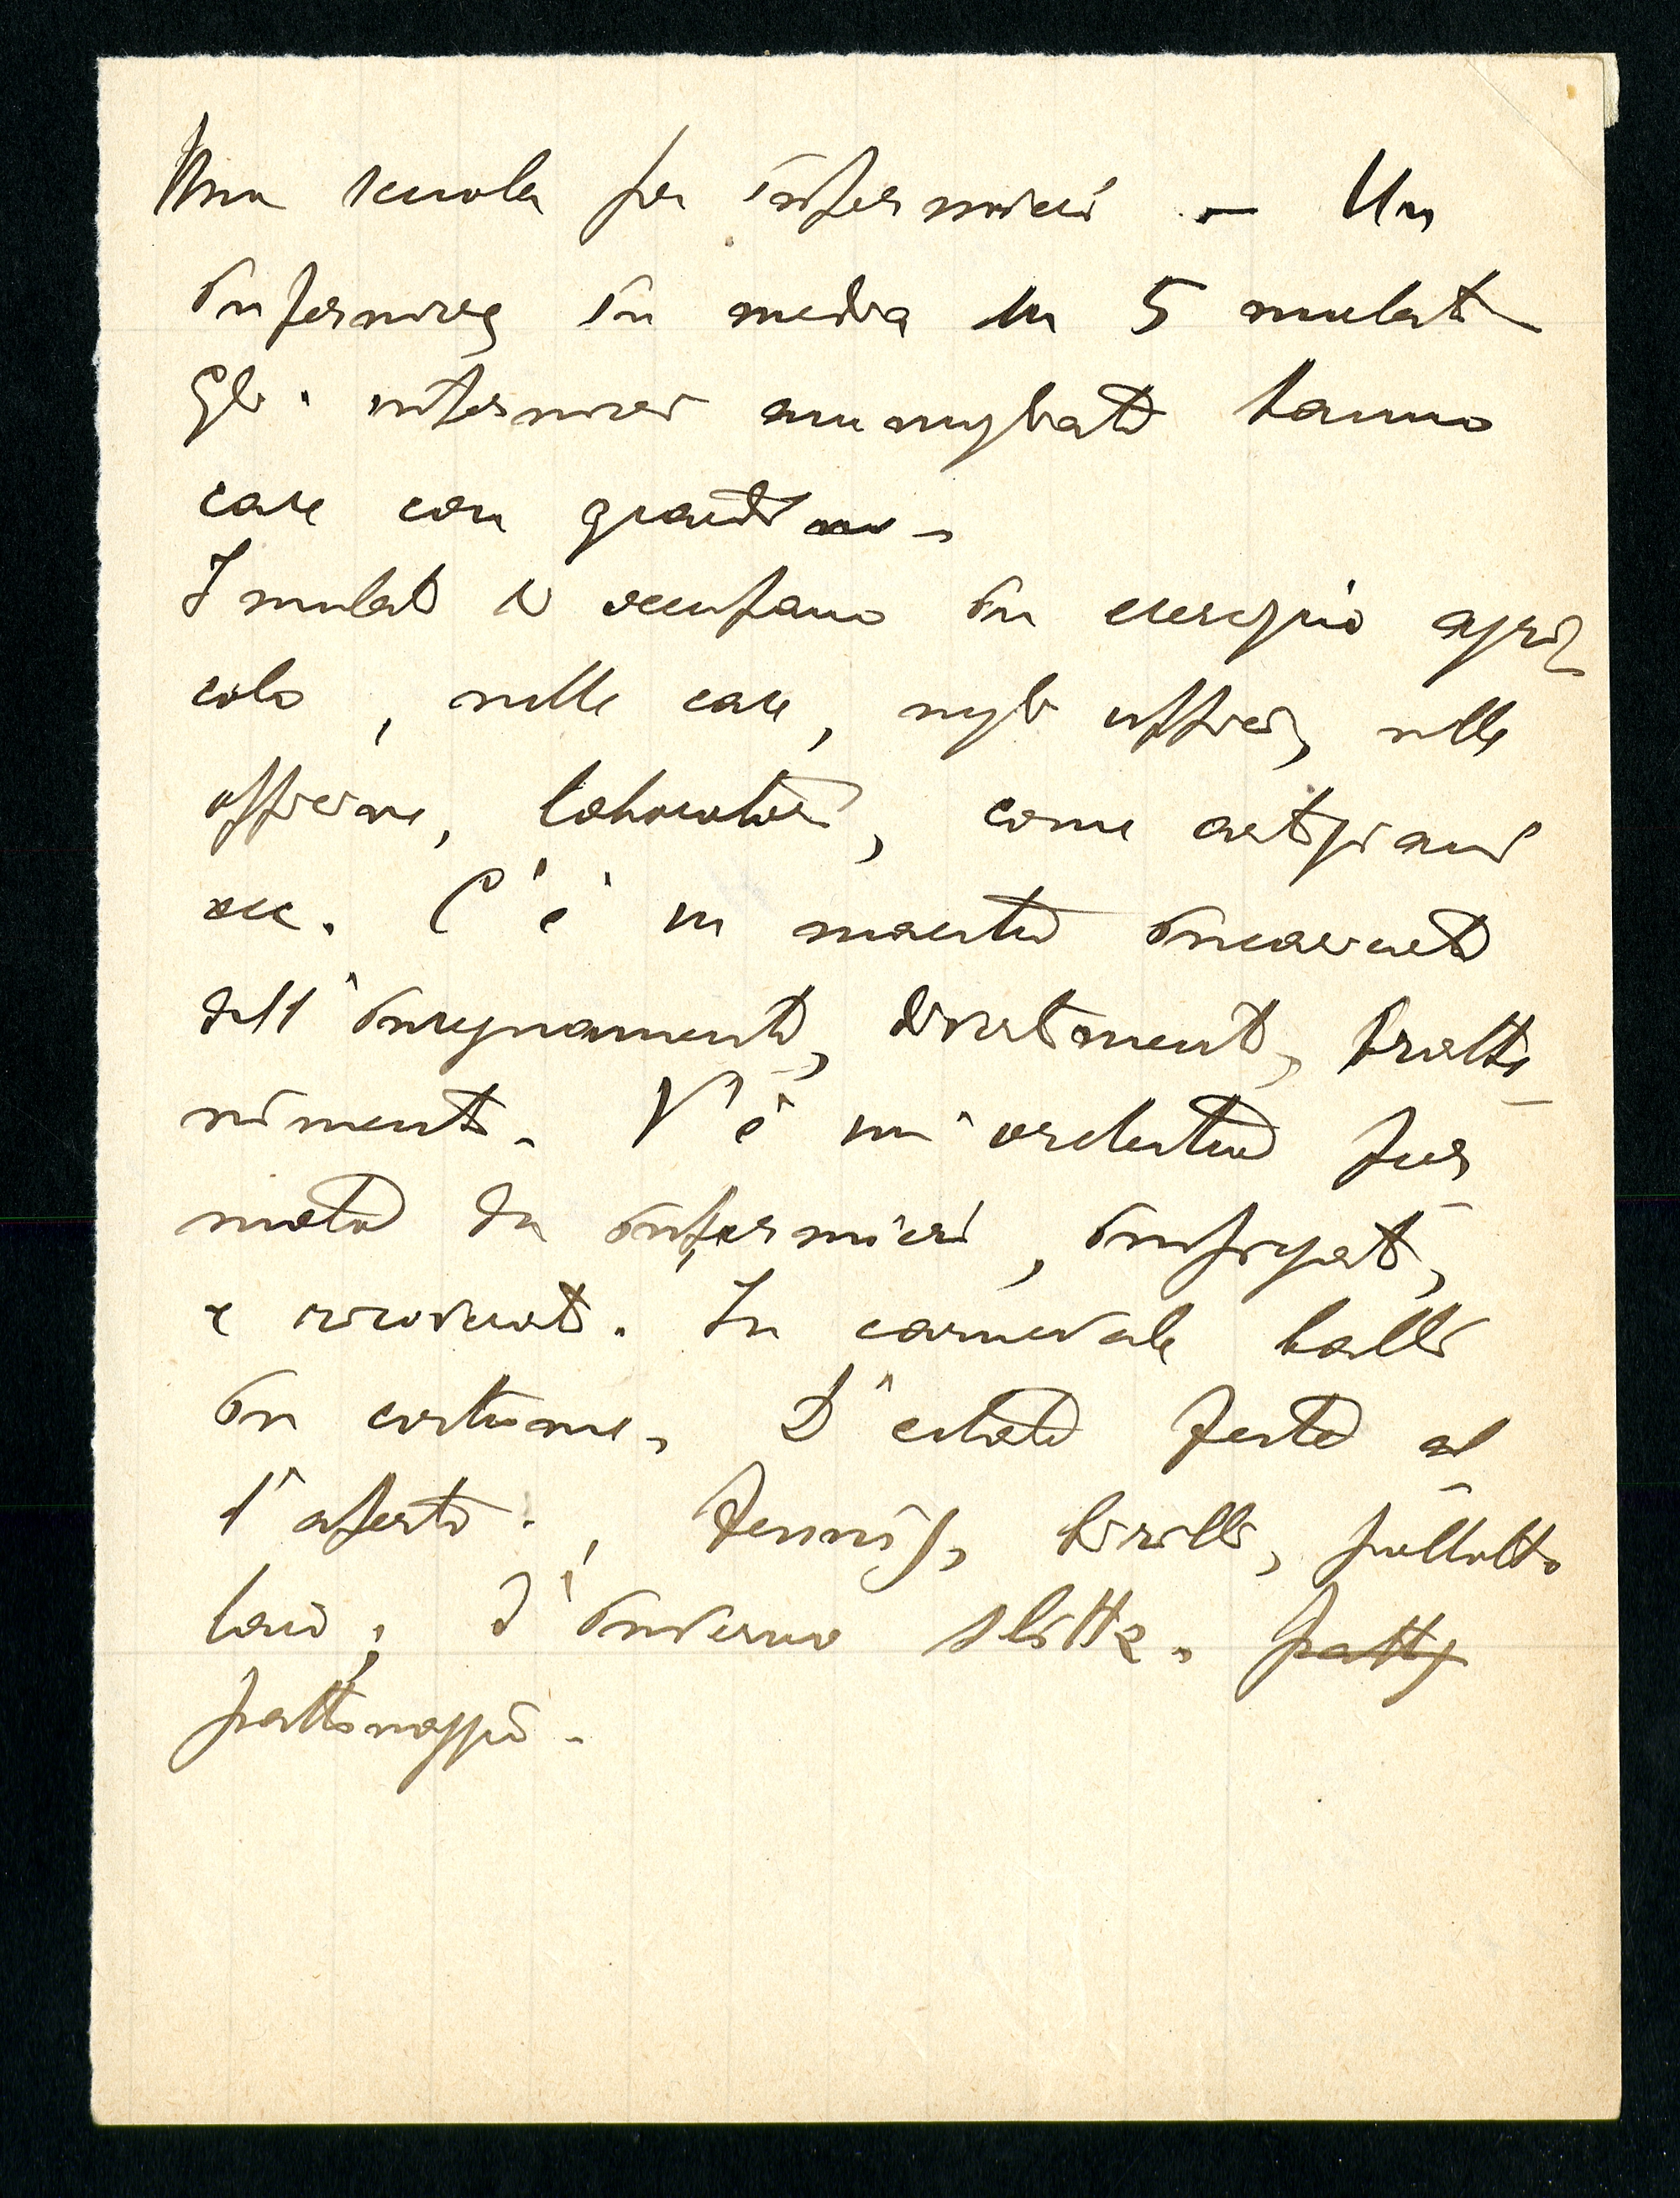 Una scuola per infermieri — Un
infermiere in media su 5 malati
Gli infermieri ammogliati hanno
case con giardino.
I malati si occupano in esercizio agri
colo, nelle case, negli uffici, nelle
officine, laboratori, come artigiani
ecc. C'è un maestro incaricato
dell'insegnamento, divertimenti, tratte
nimenti. V'è un'orchestra for
mata da infermieri, impiegati,
e ricoverati. In carnevale balli
in costume. D'estate feste al
l'aperto, Tennis, birilli,
d'inverno slitte. patt
pattinaggio.